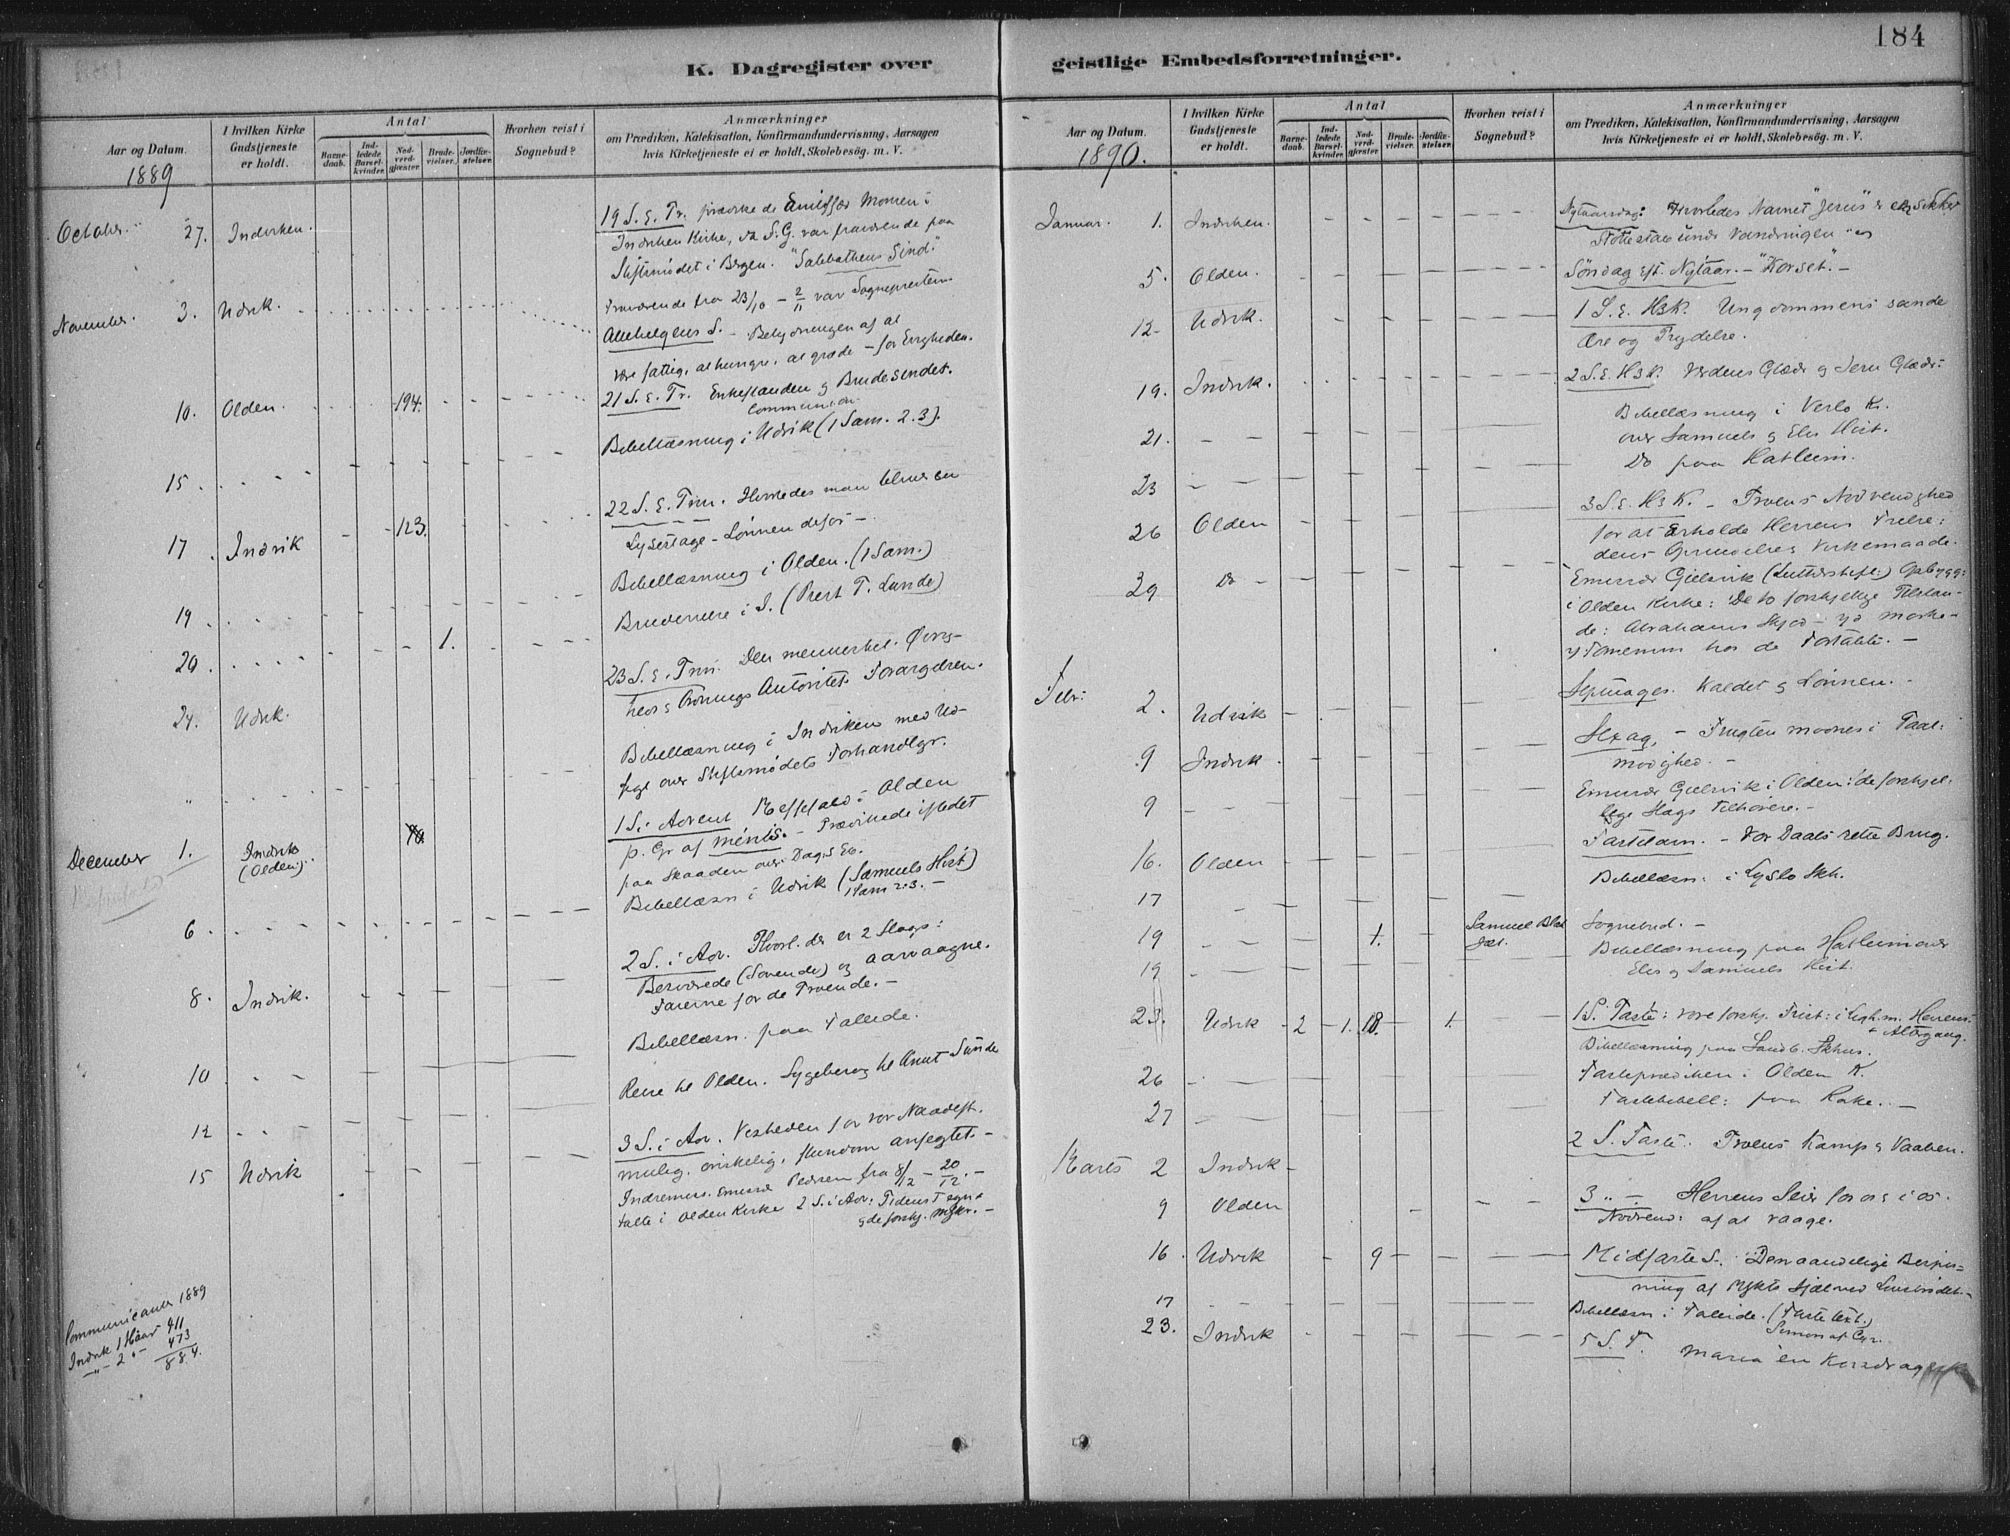 184
K. Dagregister over
geistlige Embedsforretninger.
Aar og Datum.
1889
I hvilken Kirke Gudstjeneste er holdt.
Antal
Barnedaab.
Indledede Barselkvinder.
Nadverdgjæster
Brudevielser.
Jordfæstelser.
Hvorhen reist i Sognebud?
Anmærkninger
om Prædiken, Katekisation, Konfirmandundervisning, Aarsagen
hvis Kirketjeneste ei er holdt, Skolebesøg. m. V.
October. 27. Indviken.
19 S. E. Tr.
Indviken Kirke, da S.G. var fraværende paa
Stiftsmødet i Bergen. "Sabbathens Sind."
Fraværende fra 23/10 – 2/11 var Sognepresten.
November. 3. Udvik.
Allehelgens S. – Betydningen af at
være fattig, at hungre, at græde – for Evigheden.
10. Olden. 194.
21 S. E. Tr. Enkestanden og Brudesindet.
Communion.
Bibellæsning i Udvik (1 Sam. 2.3).
15.
17. Indvik 123.
22 S. E. Trin. Hvorledes man bliver en
Lysestage – Lønnen defor –
19.
Bibellæsning i Olden. (1 Sam.)
20. 1.
Brudevielse i I. (Prest T. Lunde)
24. Udvik.
23 S. E. Trin. Den menneskel. Øvrig-
heds Autoritet. Forargelsen.
Bibellæsning i Indviken med Ud-
sigt over Stiftsmødets Forhandlgr.
December 1. Indvik (Olden).
1 S. i Advent Messefald i Olden
p. Gr af
paa Skaaden over Dag.s Ev.
6.
Bibellæsn i Udvik (Samuels Hist)
1 Sam 2.3. –
8. Indvik.
2 S. i Adv. Hvorl. der er 2 Slags:
Besværede (Sovende) og aarvaagne.
Farerne for de Troende. –
10
Bibellæsn. paa Fallede.
12
Reise til Olden. Sygebesøg til Knut Sunde
15 Udvik
3 S. i Adv. Visheden for vor Naadest.
mulig, ønskelig, stundom anfegtet. –
Indremiss. emissær Pedersen fra 8/12 – 20/12. –
talte i Olden Kirke 2 S. i Adv: Tidens Tegn
Communicanter 1889
Indvik 1 Haar 411
– " – 2 " – 473
884.
Aar og Datum.
1890.
I hvilken Kirke Gudstjeneste er holdt.
Antal
Barnedaab.
Indledede Barselkvinder.
Nadverdgjæster
Brudevielser.
Jordfæstelser.
Hvorhen reist i Sognebud?
Anmærkninger
om Prædiken, Katekisation, Konfirmandundervisning, Aarsagen
hvis Kirketjeneste ei er holdt, Skolebesøg. m. V.
Januar. 1. Indviken.
Nytaarsdag: Hvorledes Navnet "Jesus" er en sikker
Støttestav under Vandringen
5. Olden.
Søndag eft. Nytaar. – "Korset". –
12. Udvik.
1 S. E. H3K. Ungdommens sande
Ære og Prydelse.
19. Indvik.
2 S. E. H3K. Verdens Glæde og Jesu Glæde:
21.
Bibellæsning i Verlo K.
over Samuels og Elis Hist.
23
Do paa Hatleem.
26 Olden
3 S. E. H3K. – Troens Nødvendighed
for at Erholde Herrens Frelse:
dens Oprindelse og Virkemaade.
29 Do
Emissær Gjelsvik (Lutherstift.)
i Olden Kirke: De to forskjellige Tilstan-
de: Abrahams Skjød –
de Fortabte. –
Febr. 2. Udvik
Septuages. Kaldet og Lønnen. –
9 Indvik.
Sexag. – Frugten modnes i Taal-
modighed. –
9
Emissær Gjelsvik i Olden: de forskjel-
lige Slags Tilhørere. –
16. Olden
Fastelavn. – Vor Daabs rette Brug.
17
Bibellæsn. i Lyslo Skh.
19 1.
Sognebud. –
19
Bibellæsning paa Hatleim over
Elis og Samuels Hist.
23. Udvik 2 1. 18. 1.
1 S. i Faste: vore forskj. Frist: i Ligh. m. Herrens
+ Altergang.
Bibellæsning paa Sandb. Skhus.
26
Fasteprædiken i Olden K.
27
Fastebibell: paa Rake. –
Marts 2 Indvik
2 S. Faste. Troens Kamp og Vaaben.
9 Olden
3 " – Herrens Seier for os i os.
Nødvend: af at vaage.
16. Udvik 9
Midfaste S. Den aandelige Bespis-
ning af
17
Bibellæsn i Fallede. (Fastetext.)
Simon af Cyr.
23. Indvik
5 S. F. Maria en Korsdrager